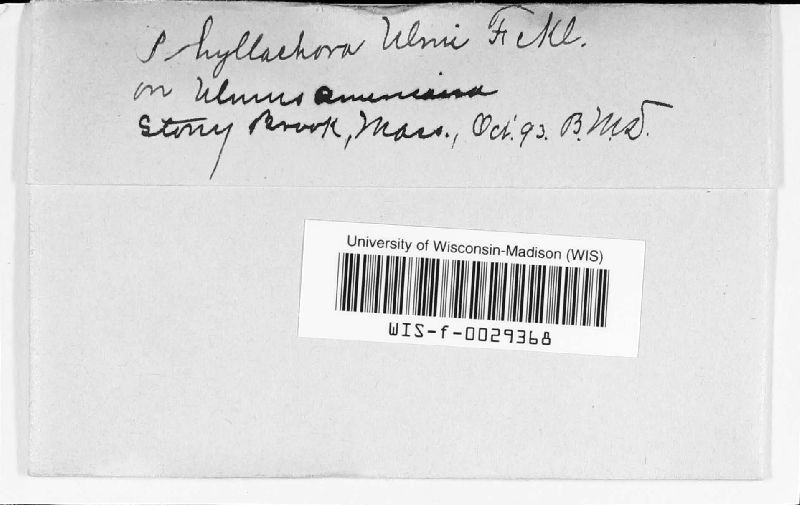 Phyllachora Ulmi Fckl.
on Ulmus americana
Stony Brook, Mass., Oct. 93. B.M.D.
University of Wisconsin-Madison (WIS)
WIS-f-0029368